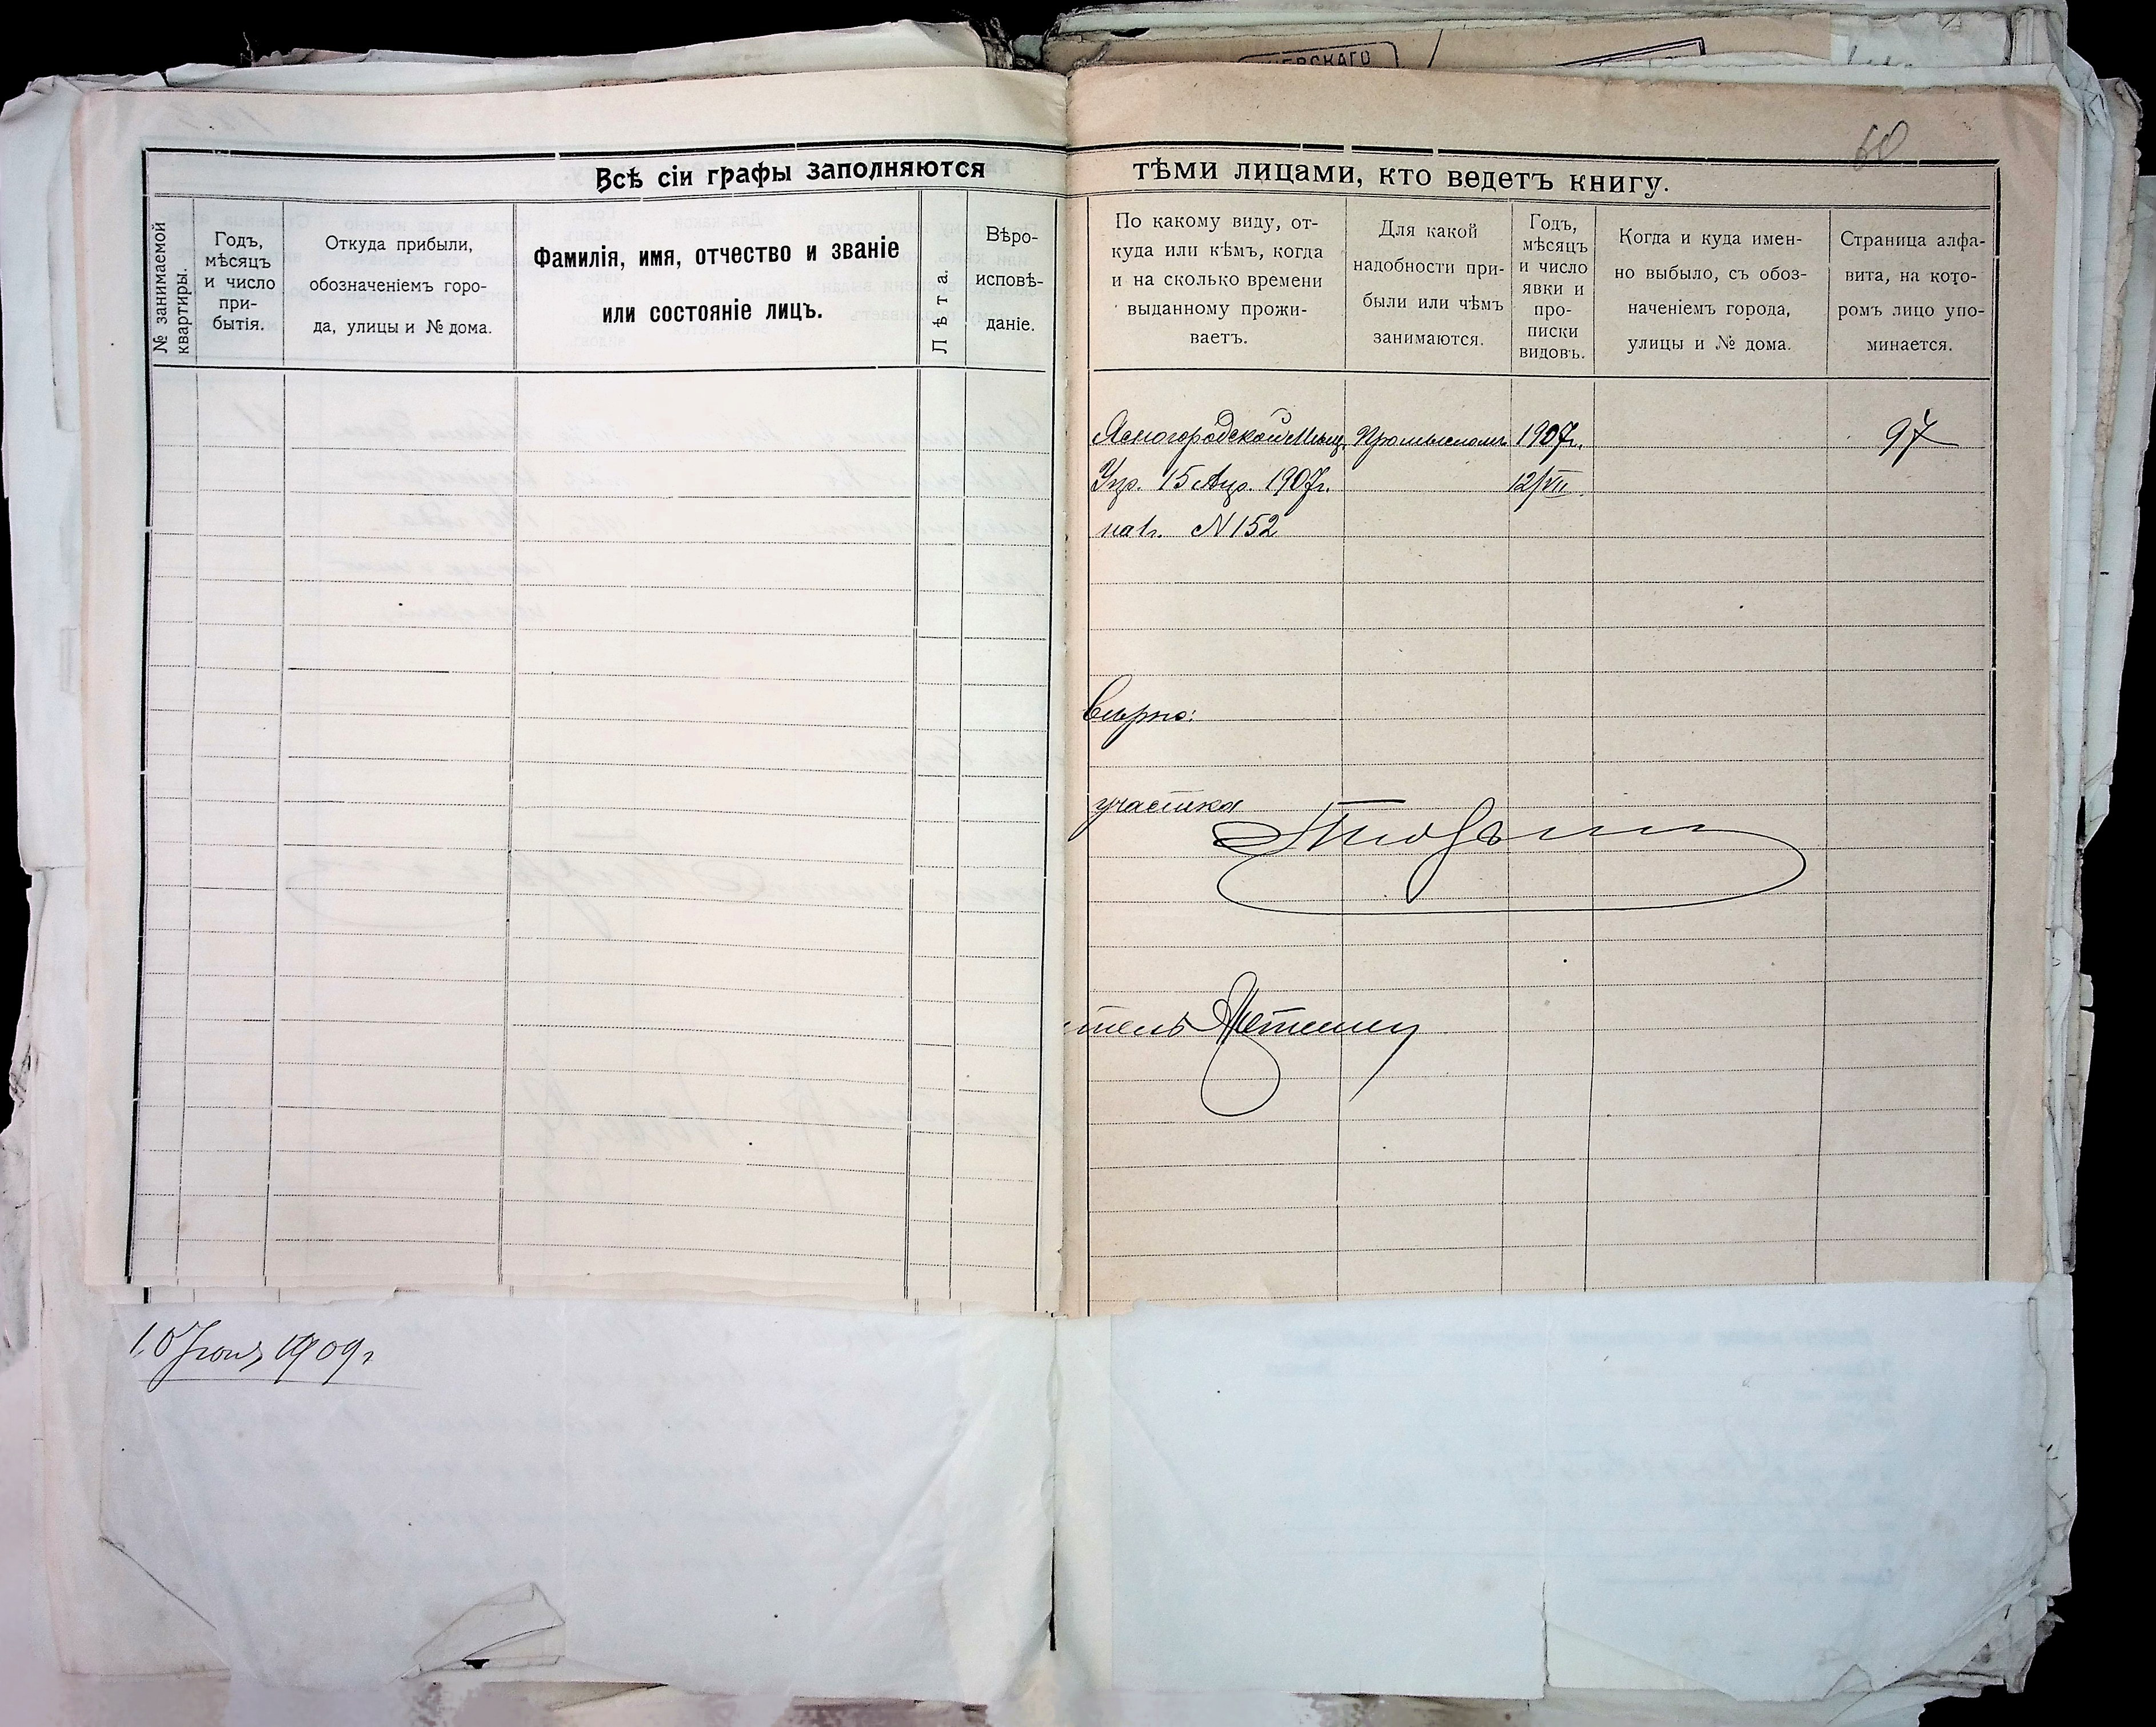 НЕРСКАГО
60
Всѣ сіи графы заполняются тѣми лицами, кто ведетъ книгу.
№ занимаемой
квартиры.
Годъ,
мѣсяцъ
и число
при-
бытія.
Откуда прибыли,
обозначеніемъ горо-
да, улицы и № дома.
Фамилія, имя, отчество и званіе
или состояніе лицъ.
Лѣта.
Вѣро-
исповѣ-
даніе.
По какому виду, от-
куда или кѣмъ, когда
и на сколько времени
выданному прожи-
ваетъ.
Для какой
надобности при-
были или чѣмъ
занимаются.
Годъ,
мѣсяцъ
и число
явки и
про-
писки
видовъ.
Когда и куда имен-
но выбыло, съ обоз-
наченіемъ города,
улицы и № дома.
Страница алфа-
вита, на кото-
ромъ лицо упо-
минается.
Ясногородской Мѣщ. Промысломъ 1907г. 97
Упр. 15 Апр. 1907г. 12/VII
N 152
Вѣрно:
участка
итель
10 Іюня 1909г